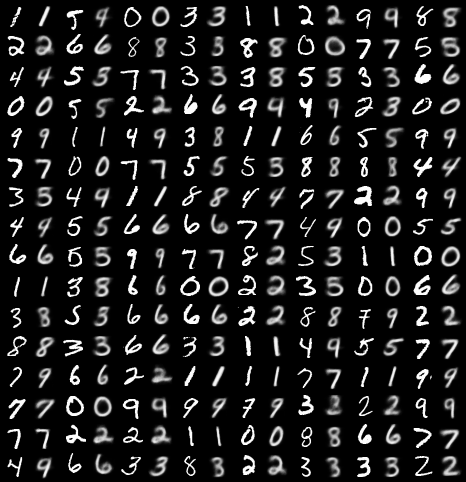 1 1 5 4 0 0 3 3 1 1 2 2 9 9 8 8
2 2 6 6 8 8 3 3 8 8 0 0 7 7 5 5
4 4 5 5 7 7 3 3 3 8 5 5 3 3 6 6
0 0 5 5 2 2 6 6 9 9 4 9 2 3 0 0
9 9 1 1 4 9 3 8 1 1 6 6 5 5 9 9
7 7 0 0 7 7 5 5 5 3 8 8 8 8 4 4
3 5 4 9 1 1 8 8 4 4 7 7 2 2 9 9
4 4 5 5 6 6 6 6 7 7 4 9 0 0 5 5
6 6 5 5 9 9 7 7 8 2 5 3 1 1 0 0
1 1 3 8 6 6 0 0 2 2 3 5 0 0 6 6
3 8 5 3 6 6 6 6 2 2 8 8 7 9 2 2
8 8 3 3 6 6 3 3 1 1 4 9 5 5 7 7
7 9 6 6 2 2 1 1 1 1 7 7 1 1 9 9
7 7 0 0 9 9 9 9 7 9 3 2 2 2 9 9
7 7 2 2 2 2 1 1 0 0 8 8 6 6 7 7
4 9 6 6 3 3 8 3 2 2 3 3 3 3 2 2